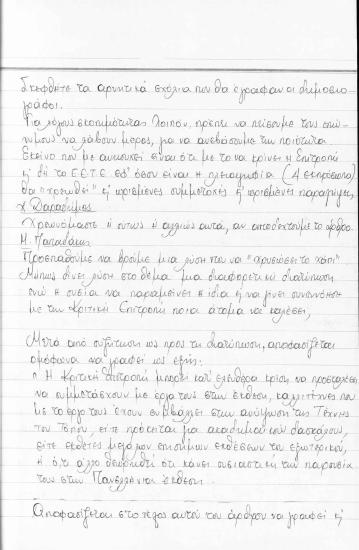 Σκεφθῆτε τα αρνητικά σχόλια που θα έγραφαν οι δημοσιο-
γράφοι.
Για λόγους σκοπιμότητας λοιπόν, πρέπει να πείσουμε τους επώ-
νυμους να λάβουν μέρος, για να ανεβάσουμε την ποιότητα.
Εκείνο που με ανησυχεί είναι ότι με το να κρίνει η Επιτροπή
ή δ το ΕΕΤΕ εφ' όσον είναι η πλειοψηφία (4 εκπρόσωποι)
θα "χρεωθεί" ή
χ Δαραδήμος
Χρεωνόμαστε ή ούτως ή άλλως αυτά, αν αποδεχτούμε το άρθρο.
Μ. Παπαδάκης
Προσπαθούμε να βρούμε μια λύση που να "χρυσώσει το χάπι"
Μήπως δίνει λύση στο θέμα μια διαφορετική διατύπωση
ενώ η ουσία να παραμείνει η ίδια ή να γίνει συνεννόηση
με την Κριτική Επιτροπή ποια άτομα να καλέσει,
Μετά από συζήτηση ως προς τη διατύπωση, αποφασίζεται
ομόφωνα να γραφεί ως εξής:
" Η Κριτική Επιτροπή μπορεί κατ' ελεύθερα κρίση να προσκαλέσει
να συμμετάσχουν με έργα τους στην έκθεση, καλλιτέχνες που
με το έργο τους έχουν συμβάλλει στην ανύψωση της Τέχνης
του Τόπου, είτε πρόκειται για ακαδημαϊκούς δασκάλους,
είτε εκθέτες μεγάλων επισήμων εκθέσεων του εξωτερικού,
ή ό,τι άλλο θεωρηθεί ότι κάνει ουσιαστική την παρουσία
τους στην Πανελλήνια έκθεση.
Αποφασίζεται στο τέλος αυτού του άρθρου να γραφεί ή